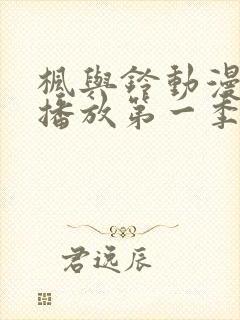 楓與鈴動漫
播放第一季
君远辰